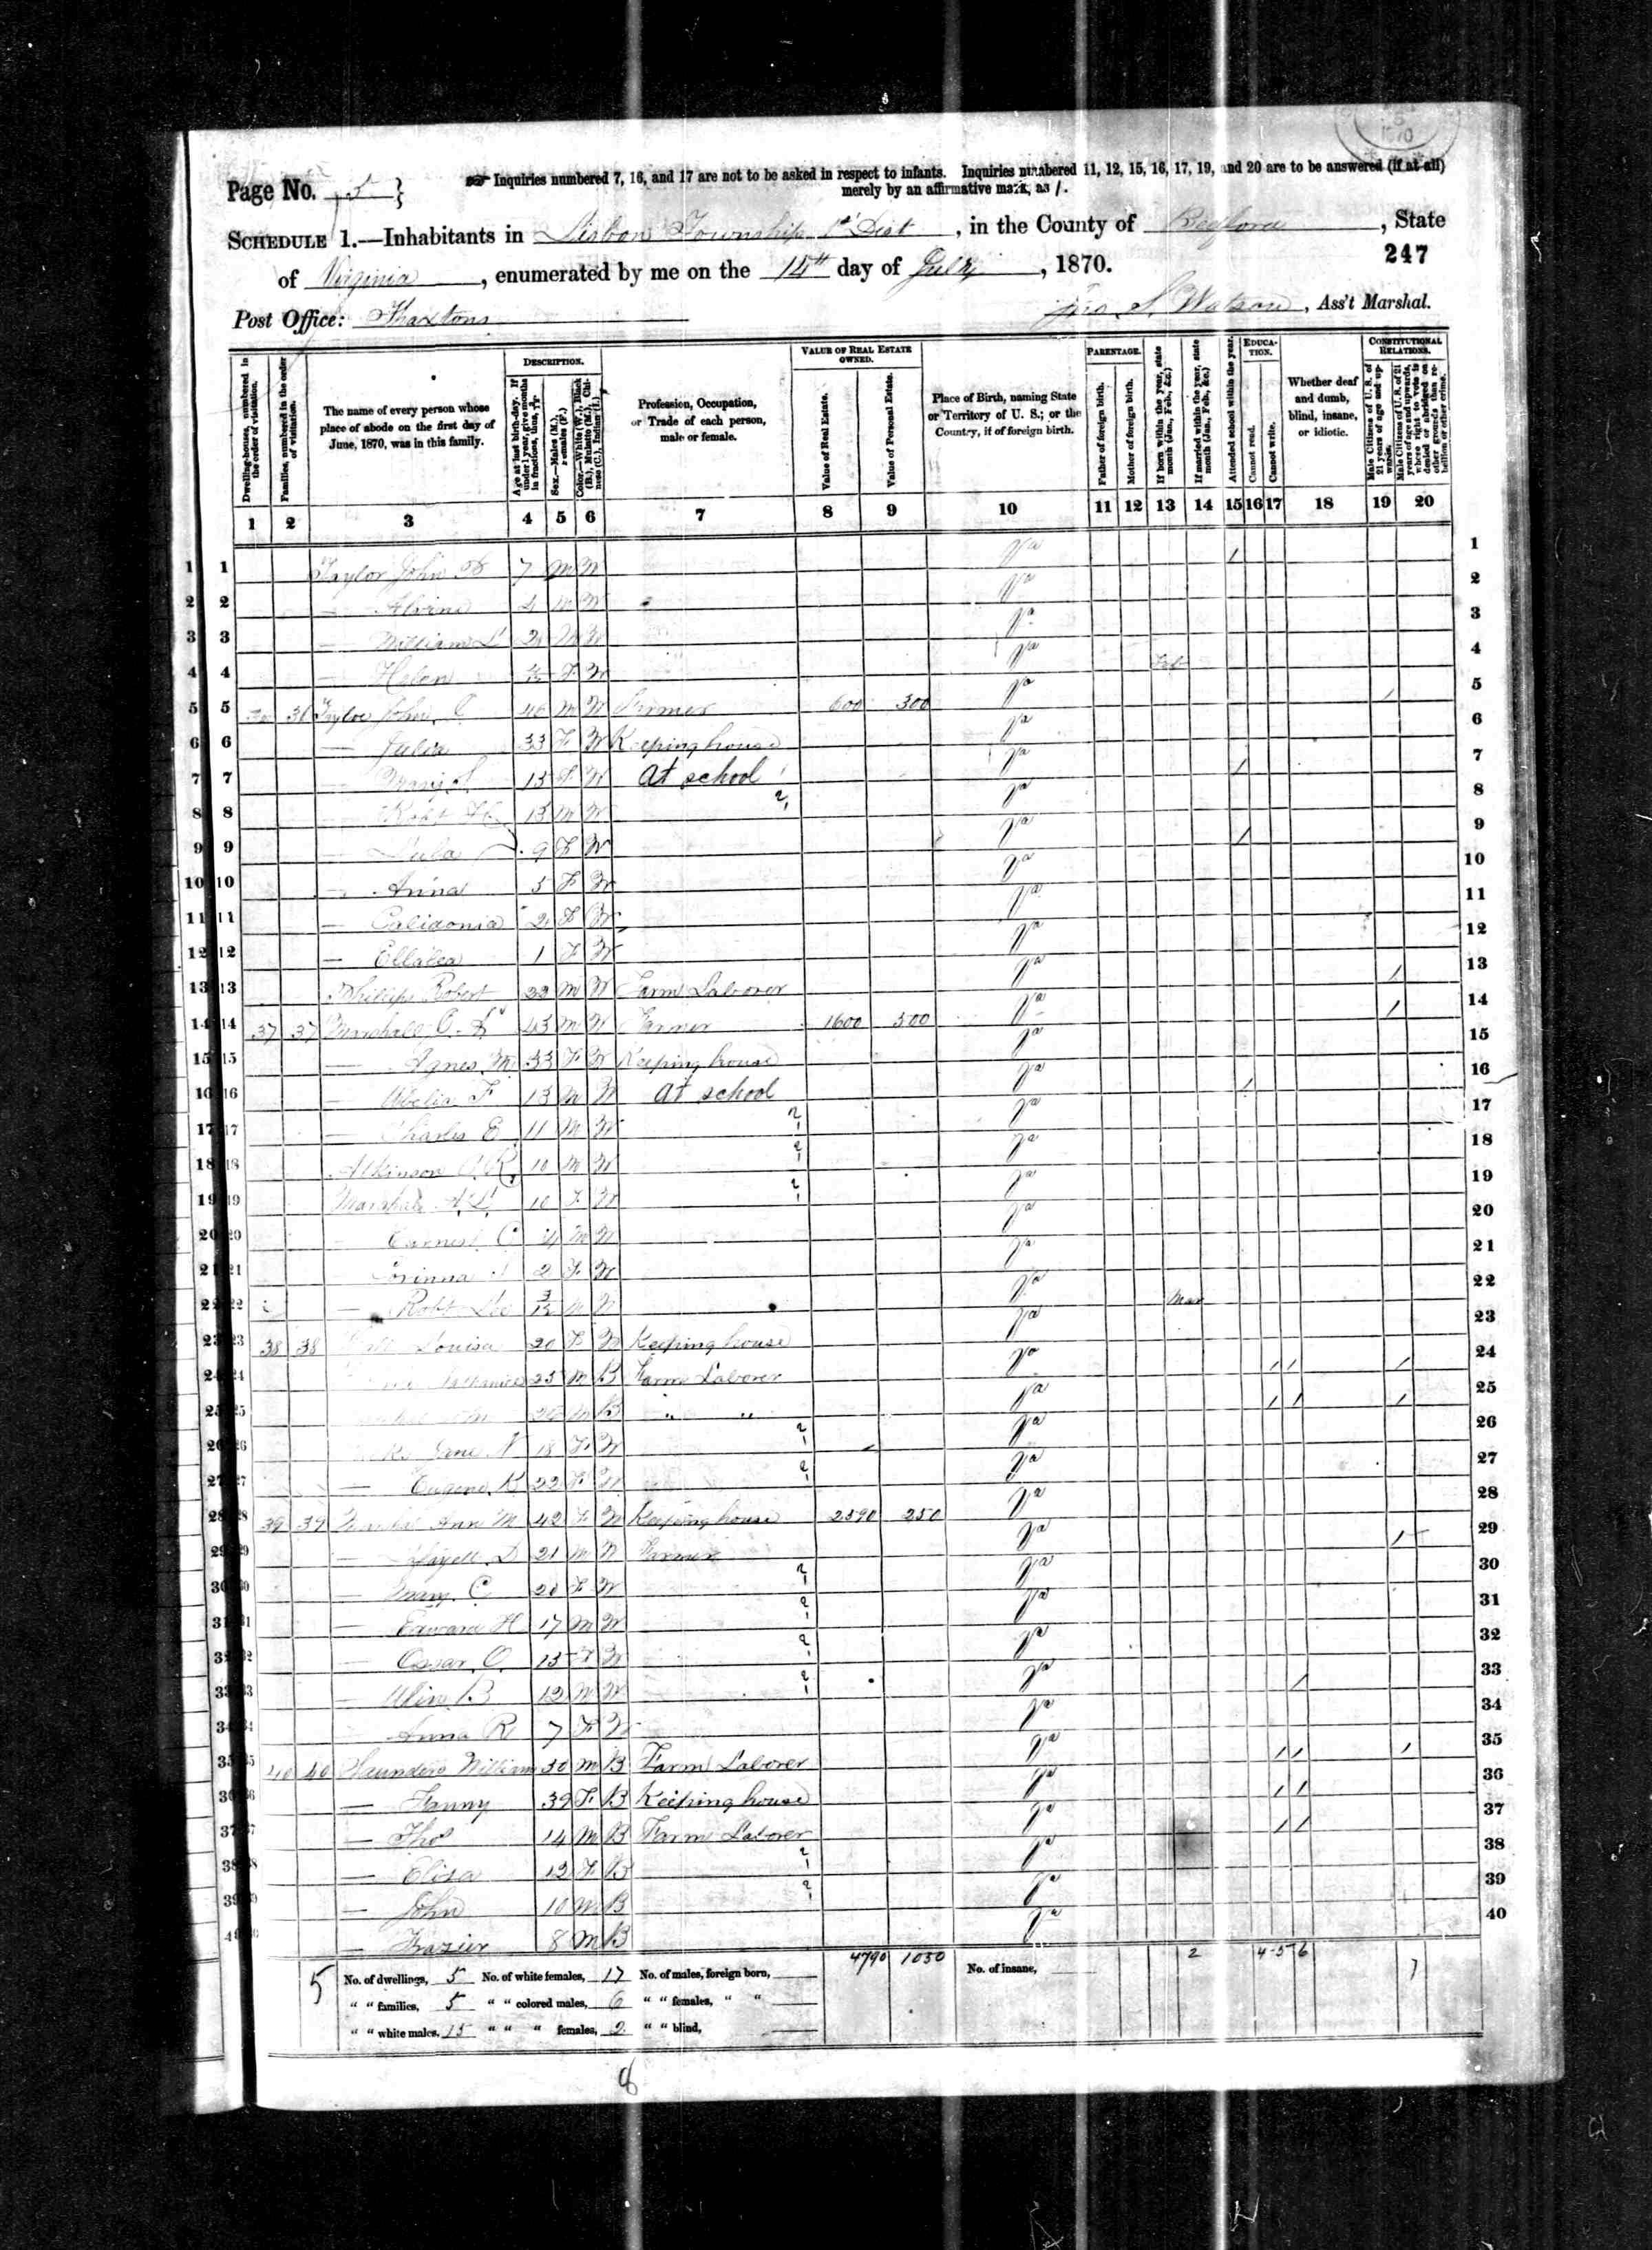 Page No. 5 }
☞ Inquiries numbered 7, 16, and 17 are not to be asked in respect to infants. Inquiries numbered 11, 12, 15, 16, 17, 19, and 20 are to be answered (if at all)
merely by an affirmative mark, as /.
SCHEDULE 1.—Inhabitants in Lisbon Township 1st Dist, in the County of Bedford, State
of Virginia, enumerated by me on the 14th day of July, 1870.
247
Post Office: Thaxtons
Jno. S. Watson, Ass't Marshal.
Dwelling-houses, numbered in the order of visitation.
Families, numbered in the order of visitation.
The name of every person whose place of abode on the first day of June, 1870, was in this family.
DESCRIPTION.
Age at last birth-day. If under 1 year, give months in fractions, thus, 3/12
Sex.—Males (M.), Females (F.)
Color.—White (W.), Black (B.), Mulatto (M.), Chinese (C.), Indian (I.)
Profession, Occupation, or Trade of each person, male or female.
VALUE OF REAL ESTATE OWNED.
Value of Real Estate.
Value of Personal Estate.
Place of Birth, naming State or Territory of U. S.; or the Country, if of foreign birth.
PARENTAGE.
Father of foreign birth.
Mother of foreign birth.
If born within the year, state month (Jan., Feb., &c.)
If married within the year, state month (Jan., Feb., &c.)
Attended school within the year.
EDUCATION.
Cannot read.
Cannot write.
Whether deaf and dumb, blind, insane, or idiotic.
CONSTITUTIONAL RELATIONS.
Male Citizens of U. S. of 21 years of age and upwards.
Male Citizens of U. S. of 21 years of age and upwards, whose right to vote is denied or abridged on other grounds than rebellion or other crime.
1 2 3 4 5 6 7 8 9 10 11 12 13 14 15 16 17 18 19 20
1 Taylor John 7 M W Va / 1
2 — 4 M W Va 2
3 — William L 2 M W Va 3
4 — Helen F W Va Feb 4
5 36 Taylor John C 46 M W Farmer 600 300 Va / 5
6 — Julia 33 F W Keeping house Va 6
7 — 15 F W At school Va / 7
8 — Robt H 13 M W Va 8
9 — Lula 9 F W Va / 9
10 — Anna 5 F W Va 10
11 — Calidonia 2 F W Va 11
12 — 1 F W Va 12
13 Phillips Robert 22 M W Farm Laborer Va / 13
14 37 37 Marshall 43 M W Farmer 1600 500 Va / 14
15 — Agnes M 33 F W Keeping house Va 15
16 — F 13 M W At school Va / 16
17 — Charles E 11 M W Va 17
18 Atkinson 10 M W Va 18
19 Marshall A L 10 F W Va 19
20 — Earnest C 4 M W Va 20
21 — Corinna 2 F W Va 21
22 — Robt Lee 3/12 M W Va Mar 22
23 38 38 Louisa 20 F W Keeping house Va 23
24 25 M B Farm Laborer Va / / / 24
25 M B " " Va / / / 25
26 Jane N 18 F W Va 26
27 — Eugene K 22 F W Va 27
28 39 39 Ann M 42 F W Keeping house 2590 250 Va 28
29 — D 21 M W Farmer Va / 29
30 — Mary C 20 F W Va 30
31 — Edward H 17 M W Va 31
32 — O. 15 F W Va 32
33 — B 12 M W Va / 33
34 — Anna R 7 F W Va 34
35 40 40 Saunders William 30 M B Farm Laborer Va / / / 35
36 — Fanny 39 F B Keeping house Va / / 36
37 — Thos 14 M B Farm Laborer Va / / 37
38 — Eliza 12 F B Va 38
39 — John 10 M B Va 39
40 — Frazier 8 M B Va 40
5 No. of dwellings, 5 No. of white females, 17 No. of males, foreign born, — 4790 1050 No. of insane, — 2 4 5 6 7
" " families, 5 " " colored males, 6 " " females, " " —
" " white males, 15 " " " females, 2 " " blind, —
8